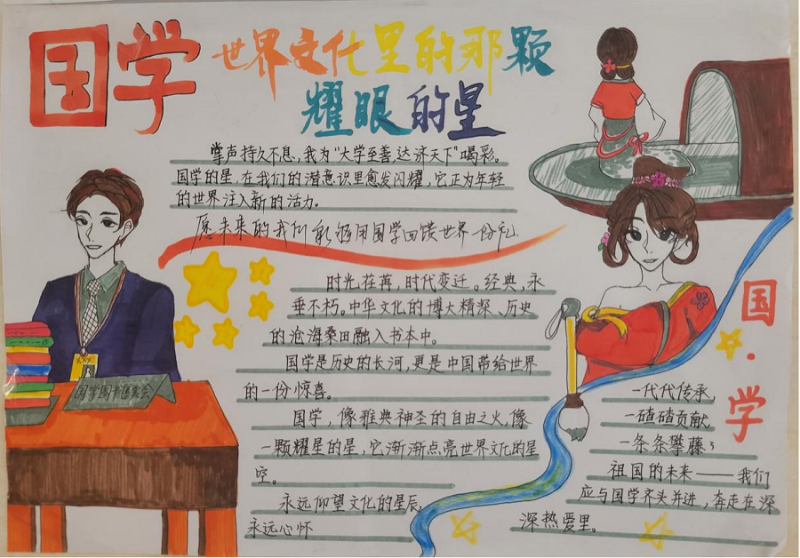 国学
世界文化里的那颗
耀眼的星
掌声持久不息,我为“大学至善达济天下”喝彩。
国学的星在我们的潜意识里愈发闪耀,它正为年轻
的世界注入新的活力。
愿未来的我们能够用国学回馈世界一份礼
时光荏苒,时代变迁。经典,永
垂不朽。中华文化的博大精深、历史
的沧海桑田融入书本中。
国学是历史的长河,更是中国带给世界
的一份惊喜。
国学,像雅典神圣的自由之火,像
一颗耀星的星,它渐渐点亮世界文化的星
空。
永远仰望文化的星辰,
永远心怀
国学图书
国·学
一代代传承,
一碴碴贡献,
一条条攀藤;
祖国的未来——我们
应与国学齐头并进,奔走在深
深热爱里。